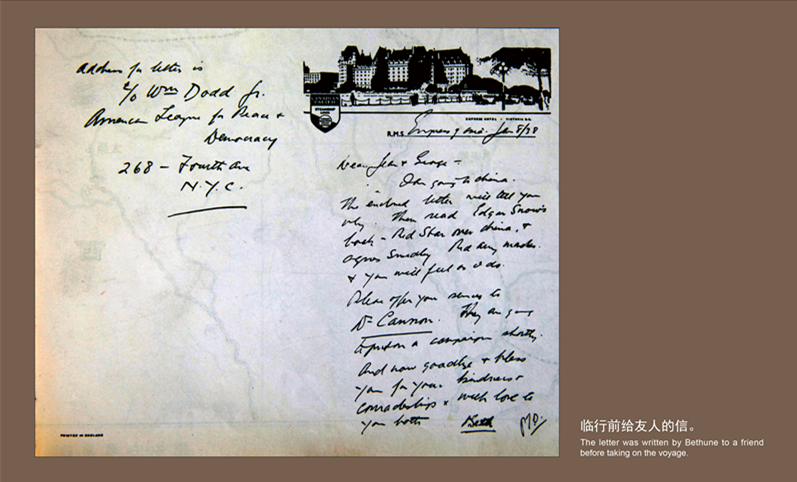 Address for letter is
c/o Wm Dodd Jr.
American League for Peace &
Democracy
268 - Fourth Ave
N.Y.C.
PRINTED IN ENGLAND
CANADIAN
PACIFIC
EMPRESS HOTEL - VICTORIA B.C.
R.M.S. Empress of Asia. Jan 8/38
Dear Jean & George -
I am going to China.
The enclosed letter will tell you
why. Then read Edgar Snow's
book - Red Star over China, &
Agnes Smedley Red Army marches
& you will feel as I do.
Please offer your services to
Dr Cannon. They are going
to put on a campaign shortly.
And now goodbye & bless
you for your kindness &
comradeship & with love to
you both Beth
临行前给友人的信。
The letter was written by Bethune to a friend
before taking on the voyage.